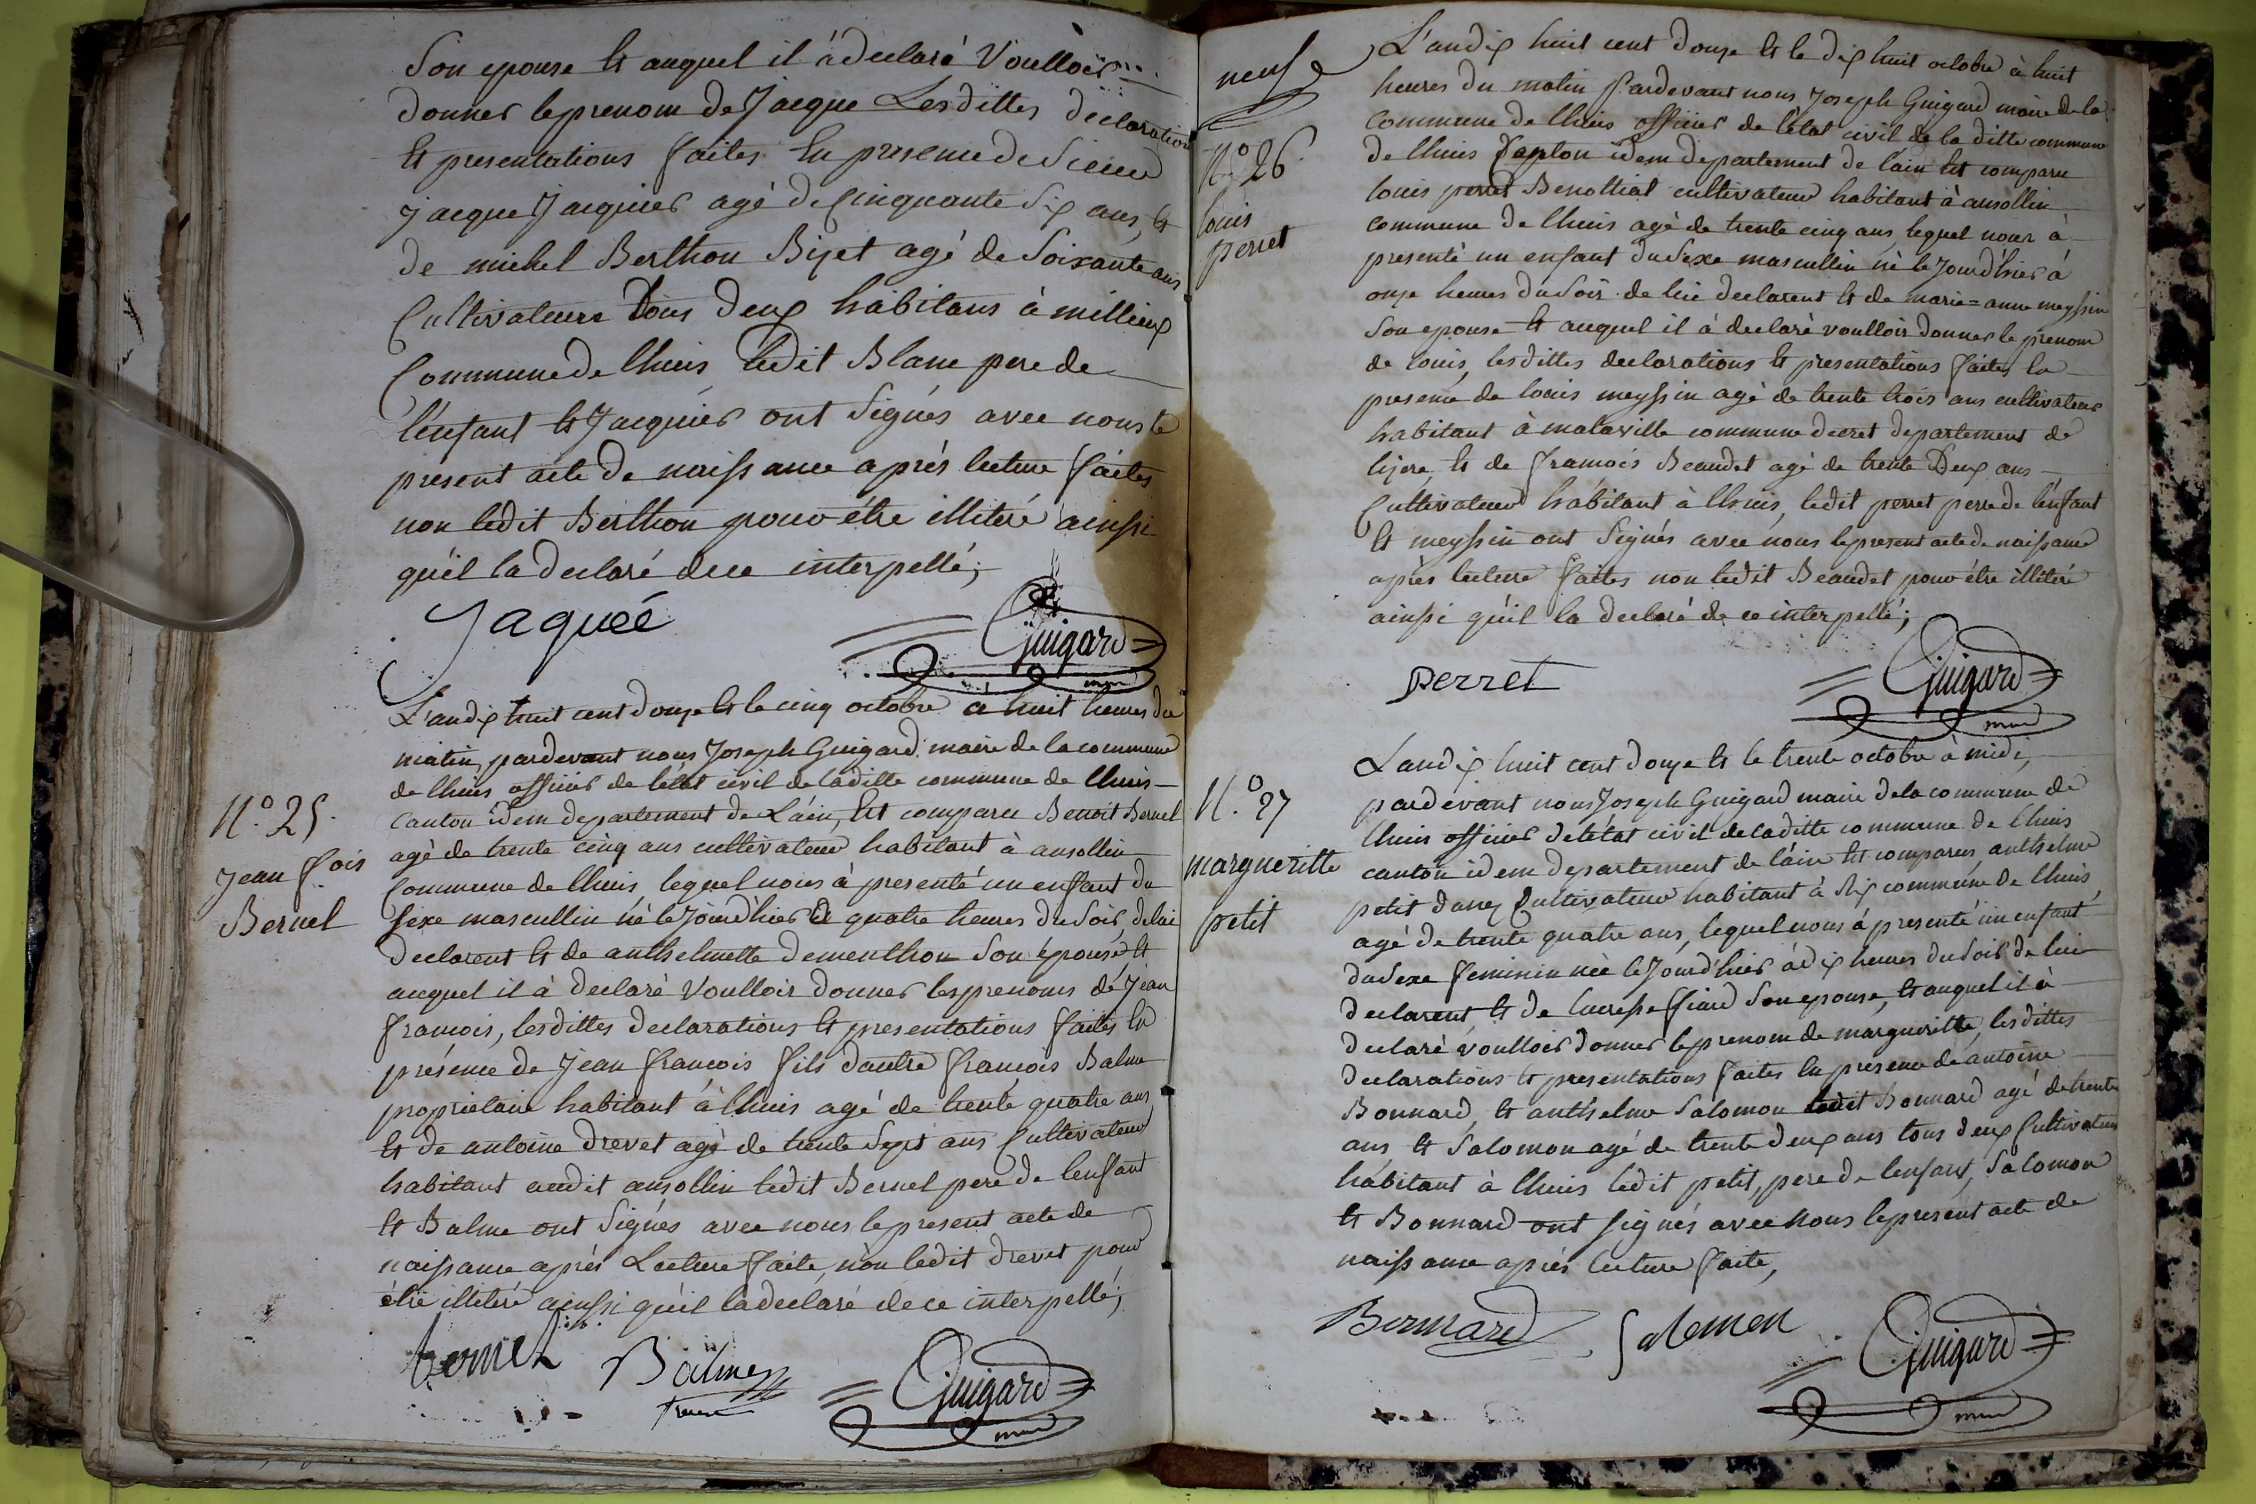 Son epouse et auquel il à declaré Voulloir
donner le prenom de Jacque Lesdittes déclarations
et presentations faites En presence de Sieur
jacque Jacquier agé de Cinquante Six ans, et
de michel Berthon Bijet agé de Soixante ans
Cultivateurs Tous deux habitans à millieux
Commune de lhuis ledit Blanc pere de
l'enfant et Jacquier ont Signés avec nous le
present acte de naissance aprés lecture faites
non ledit Berthon pour étre illiteré ainsi
qu'il la declaré de ce interpellé;
Jaquée Guigard
maire
N.° 25.
jean fois
Bernel
L'an dix huit cent douze et le cinq octobre à huit heures du
matin, pardevant nous Joseph Guigard maire de la commune
de lhuis officier de létat civil de laditte commune de lhuis
canton idem departement de Láin, Est comparu Benoit Bernel
agé de trente cinq ans cultivateur habitant à ansollin
Commune de lhuis lequel nous à presenté un enfant du
Sexe mascullin né le Jourd'hier à quatre heures du Soir, de lui
declarent et de anthelmette dementhon Son épouse et
auquel il à declaré Voulloir donner les prenoms de Jean
françois, lesdittes declarations et presentations faites En
présence de Jean françois fils dautre françois Balme
proprietaire habitant à lhuis agé de trente quatre ans
et de antoine drevet agé de trente Sept ans Cultivateur
habitant audit ansollin ledit Bernel pere de lenfant
et Balme ont Signés avec nous le present acte de
naissance aprés Lecture faite, non ledit drevet pour
étre illiteré ainsi qu'il la declaré de ce interpellé;
bernel Balme Guigard
maire
neuf
N.° 26.
louis
perret
L'an dix huit cent douze et le dix huit octobre à huit
heures du matin Pardevant nous Joseph Guigard maire de la
Commune de lhuis officier de létat civil de la ditte commune
de lhuis Canton idem departement de láin Est comparu
louis perret Benottial cultivateur habitant à ansollin
commune de lhuis agé de trente cinq ans lequel nous à
presenté un enfant du Sexe mascullin né le Jourd'hier à
onze heures du Soir de lui declarent et de marie=anne meyssin
Son epouse et auquel il à declaré voulloir donner le prenom
de louis, lesdittes declarations et presentations faites En
presence de louis meyssin agé de trente trois ans cultivateur
habitant à malaville commune decret departement de
lizere, et de francois Beaudet agé de trente Deux ans
Cultivateur habitant à lhuis, ledit perret perre de lenfant
et meyssin ont Signés avec nous le present acte de naissance
aprés lecture faites non ledit Beaudet pour étre illiteré
ainsi qu'il la declaré de ce interpellé;
perret Guigard
maire
N.° 27
margueritte
petit
L'an dix huit cent douze et le trente octobre à midi,
pardevant nous Joseph Guigard maire de la commune de
lhuis officier de létat civil de laditte commune de lhuis
canton idem departement de láin Est comparus anthelme
petit danez Cultivateur habitant à Rix commune de lhuis,
agé de trente quatre ans, lequel nous à presenté un enfant
du Sexe feminin née le Jourd'hier à dix heures du Soir de lui
declarent et de lucresse fiard Son epouse, et auquel il à
declaré voulloir donner le prenom de margueritte, lesdittes
declarations et presentations faites En presence de antoine
Bonnard, et anthelme Salomon ledit Bonnard agé de trente
ans et Salomon agé de trente deux ans tous deux Cultivateurs
habitant à lhuis ledit petit, pere de lenfant, Salomon
et Bonnard ont signés avec nous le present acte de
naissance aprés lecture faite,
Bonnard Salomon Guigard
maire